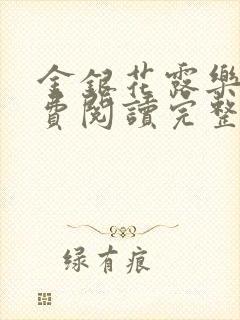 金銀花露樂
費閱讀完整
绿有痕